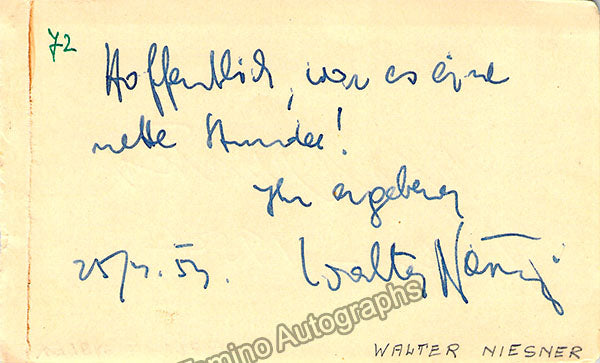 72
Hoffentlich, war es eine
nette Stunde!
Ihr ergebener
Walter
Tamino Autographs
WALTER NIESNER